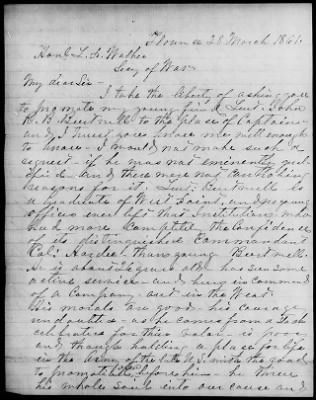 Florence 28 March 1861.
Honl L. P. Walker
Secy of War
My dear Sir -
I take the liberty of asking you
to promote my young friend Lieut. John
to the place of Captain -
and I trust you know me well enough
to know - I would not make such a
request - if he was not eminently qual-
ified - and there were not controlling
reasons for it. Lieut.
a graduate of West Point, and no young
officer ever left that Institution who
had more completely the confidence
of its distinguished Commandant
Col: Hardee than young
He is about 26 years old - has seen some
active service - and being in command
of a Company - out in the West
His morals are good - his courage
as he comes from a
celebrated for their valor - is poor
and though holding a place for life
in the Army of the late U. S. with the good
to promotion before him - he threw
his whole soul into our cause and